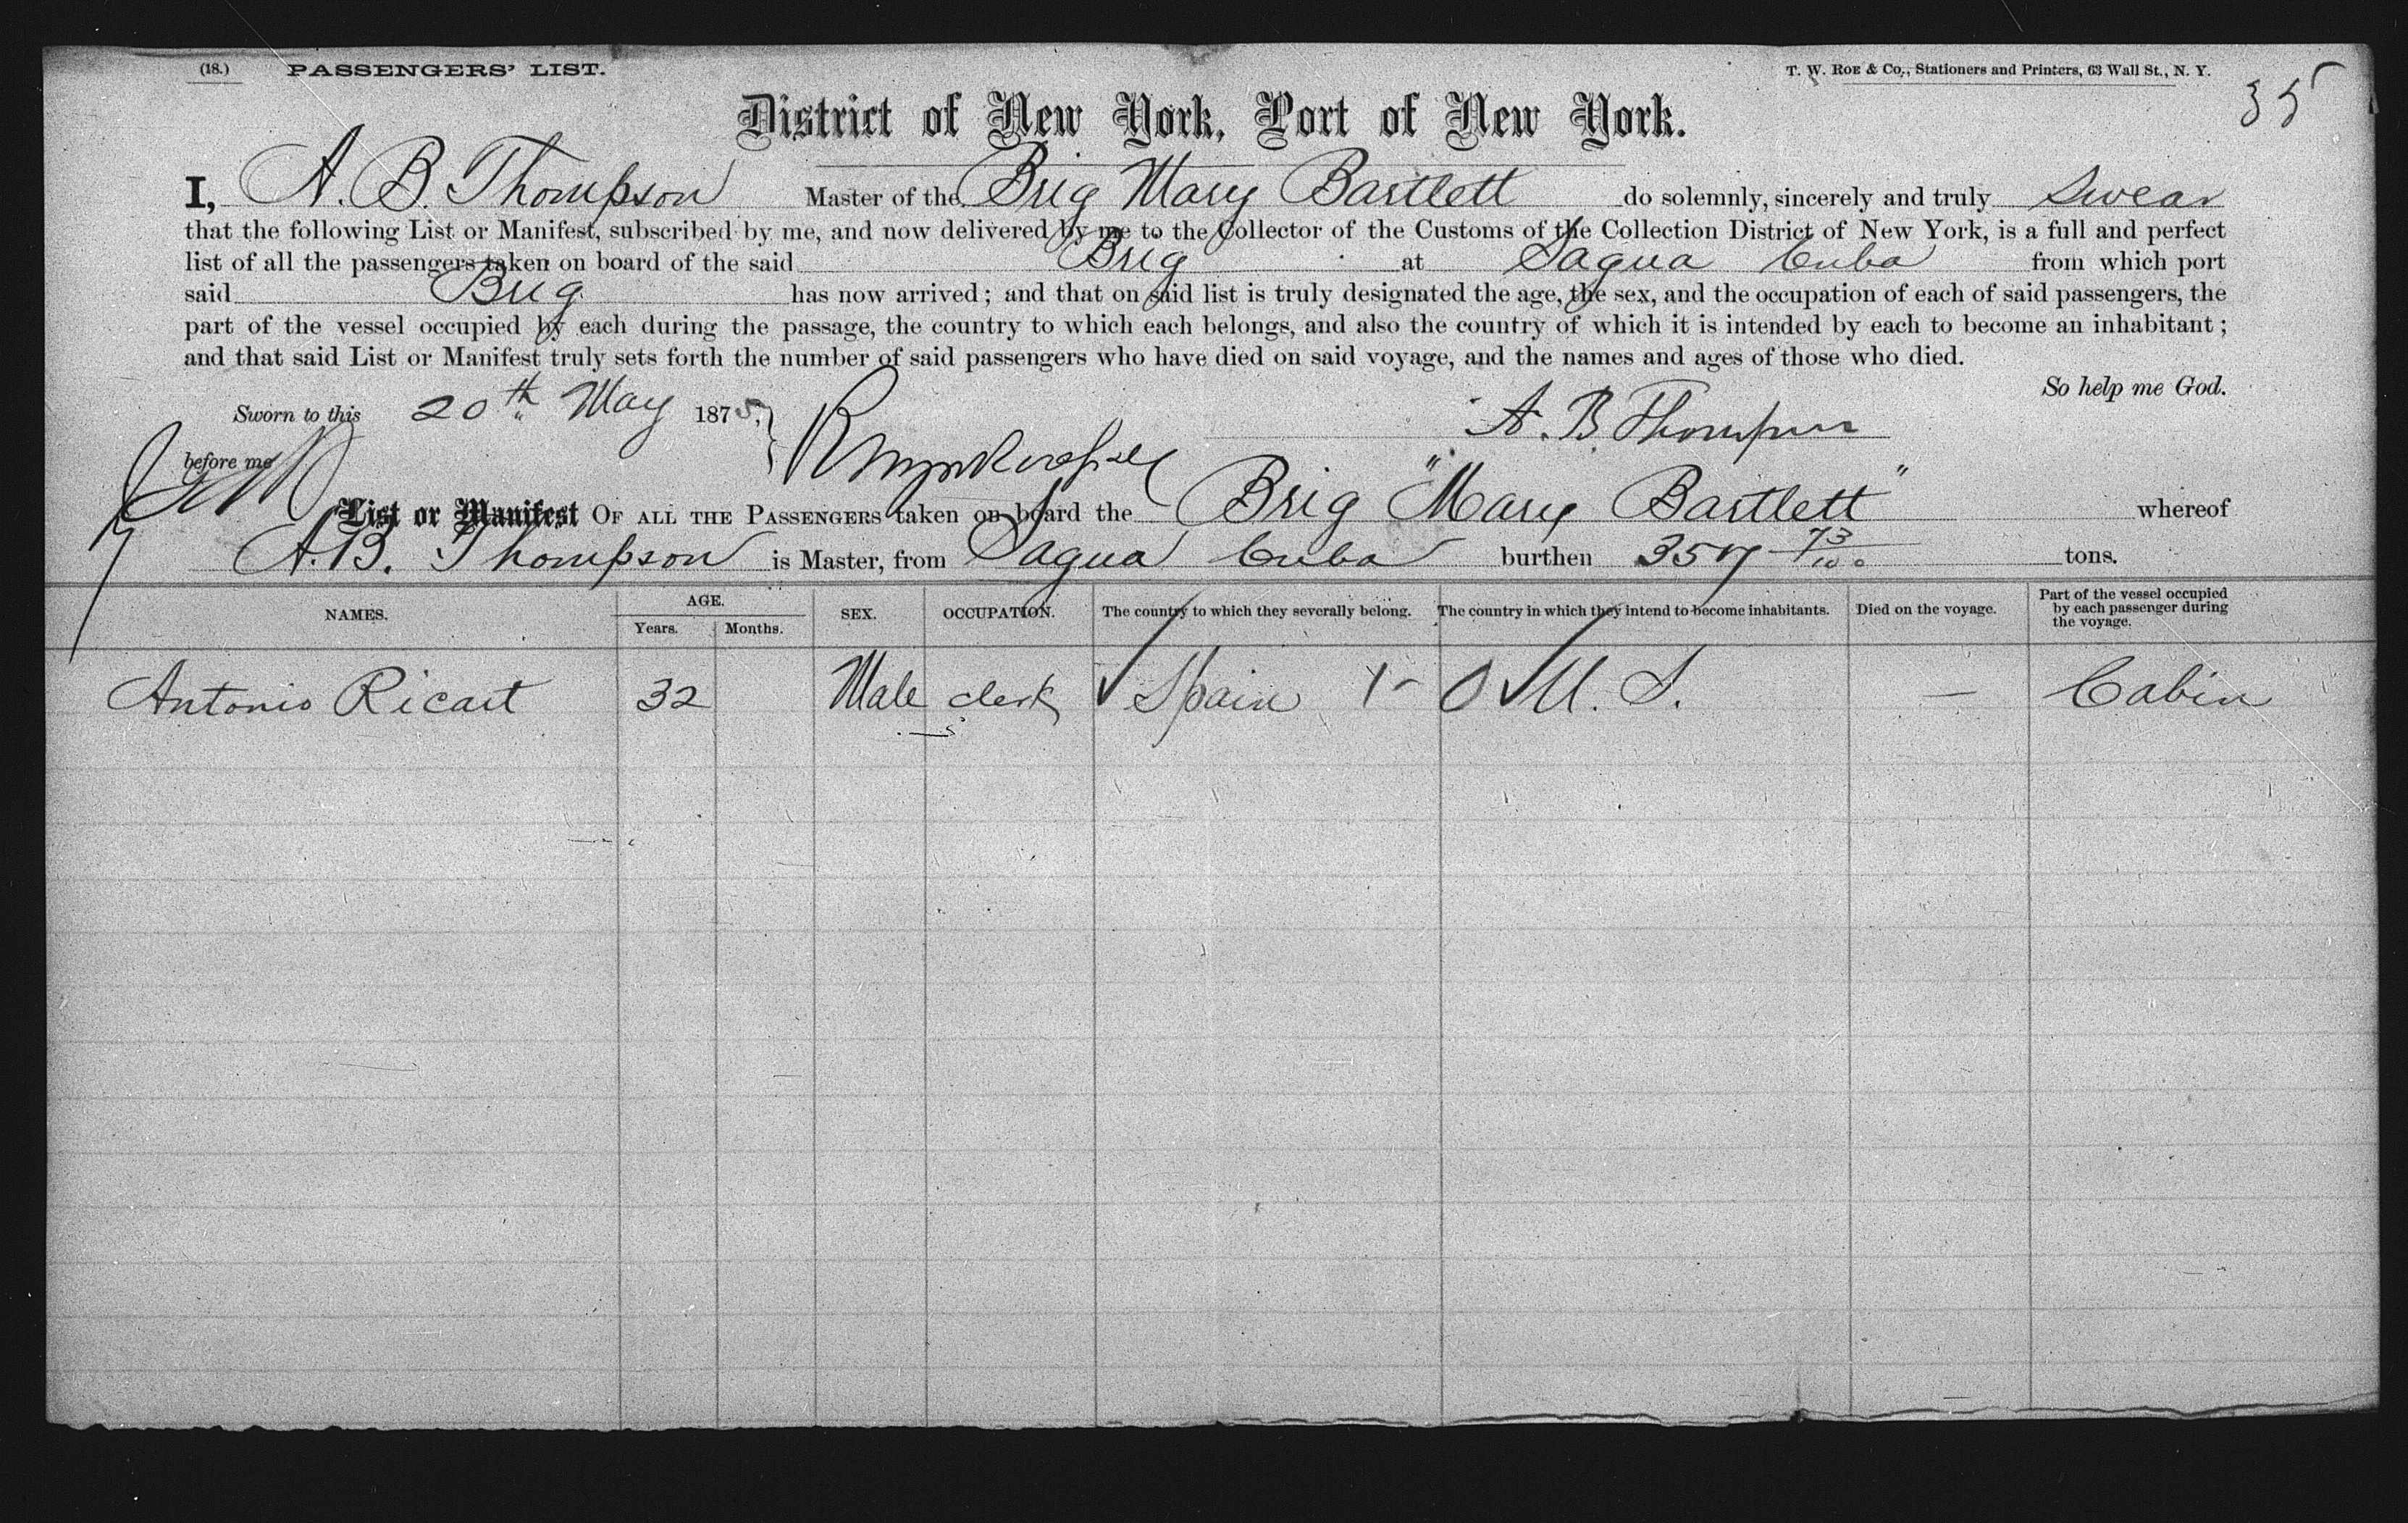 (18.) PASSENGERS' LIST. T. W. ROE & Co., Stationers and Printers, 63 Wall St., N. Y.
35
District of New York, Port of New York.
I, A. B. Thompson Master of the Brig Mary Bartlett do solemnly, sincerely and truly swear
that the following List or Manifest, subscribed by me, and now delivered by me to the Collector of the Customs of the Collection District of New York, is a full and perfect
list of all the passengers taken on board of the said Brig at Sagua Cuba from which port
said Brig has now arrived; and that on said list is truly designated the age, the sex, and the occupation of each of said passengers, the
part of the vessel occupied by each during the passage, the country to which each belongs, and also the country of which it is intended by each to become an inhabitant;
and that said List or Manifest truly sets forth the number of said passengers who have died on said voyage, and the names and ages of those who died.
So help me God.
Sworn to this 20th May 1875, A. B Thompson
before me
List or Manifest OF ALL THE PASSENGERS taken on board the Brig "Mary Bartlett" whereof
A. B. Thompson is Master, from Sagua Cuba burthen 357 73/100 tons.
NAMES. AGE. Years. Months. SEX. OCCUPATION. The country to which they severally belong. The country in which they intend to become inhabitants. Died on the voyage. Part of the vessel occupied by each passenger during the voyage.
Antonio Ricart 32 Male clerk Spain 1- 0 U. S. — Cabin